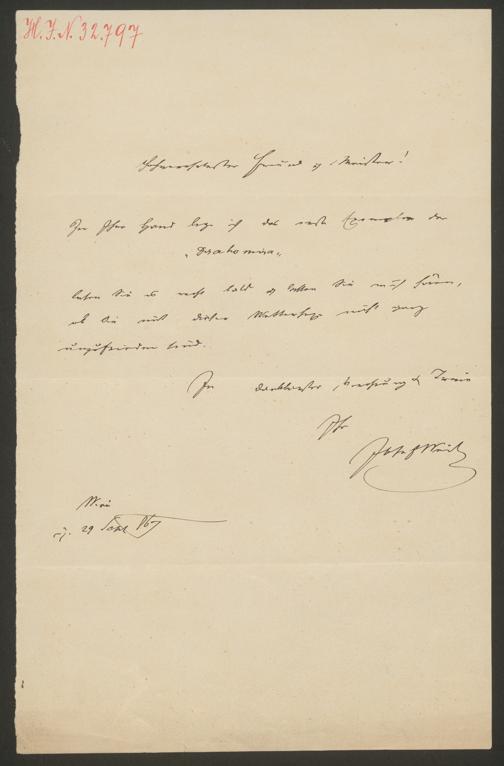 H. I. N. 32.797
Hochverehrtester Freund & Meister!
In Ihre Hand lege ich das erste Exemplar der
„Drahomira“
lesen Sie es recht bald & lassen Sie mich hören,
ob Sie mit dieser nicht ganz
unzufrieden sind.
In dankbarster Verehrung & Treue
Ihr
Josef Weil
Wien
29 Sept 867